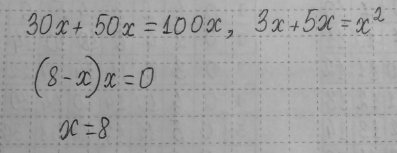 30x + 50x = 100x, 3x + 5x = x²
(8 - x)x = 0
x = 8